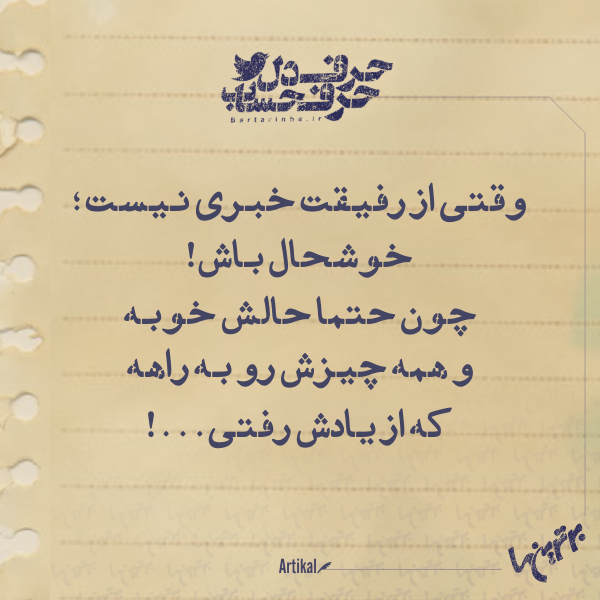 حرف دل
حرف حساب
Bartarinha.ir
وقتی از رفیقت خبری نیست؛
خوشحال باش!
چون حتما حالش خوبه
و همه چیزش رو به راهه
که از یادش رفتی...!
Artikal
برترین‌ها